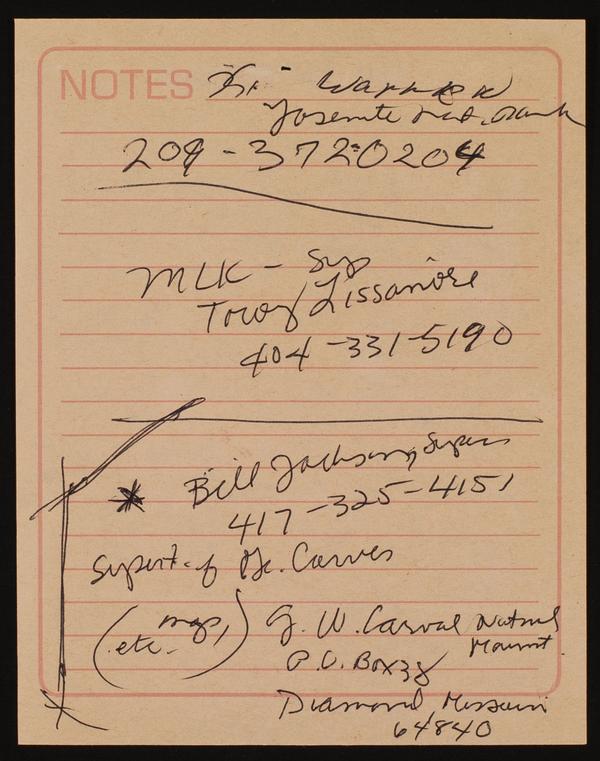 NOTES
Yosemite Nat. Park
209-372-0204
MLK - Sup
Troy Lissimore
404-331-5190
* Bill Jackson, Supers
417-325-4151
Supert. of G. Carver
(maps, etc.)
G. W. Carver National Monumt
P.O. Box 38
Diamond, Missouri
64840